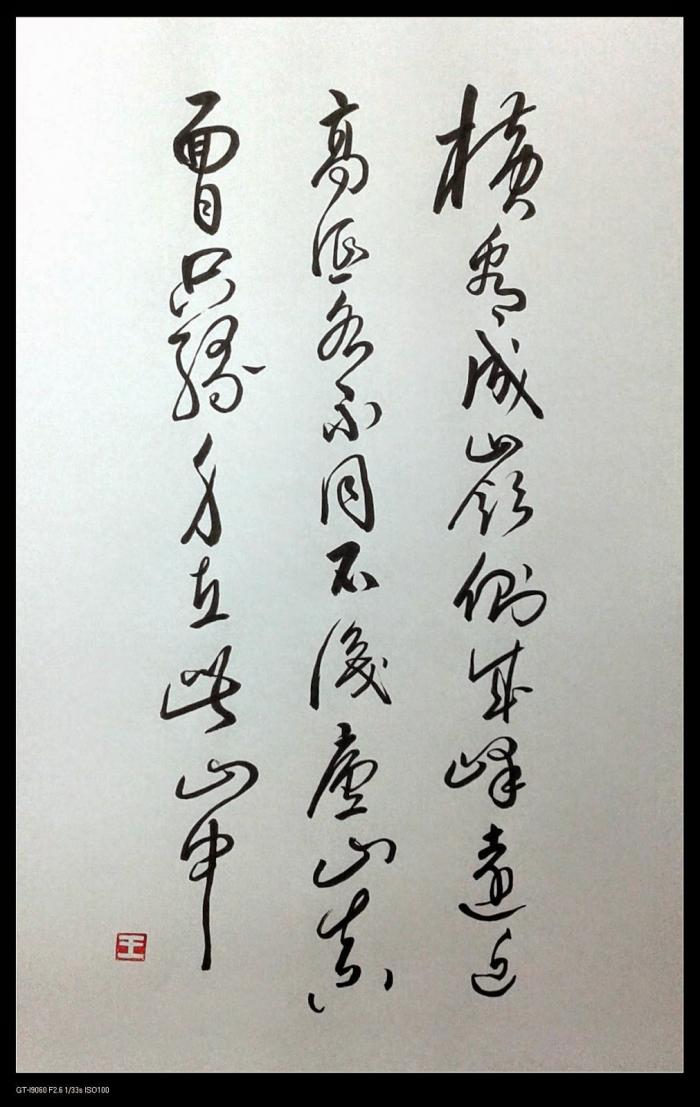 橫看成嶺側成峰遠近
高低各不同不識廬山真
面目只緣身在此山中
王
GT-I9060 F2.6 1/33s ISO100